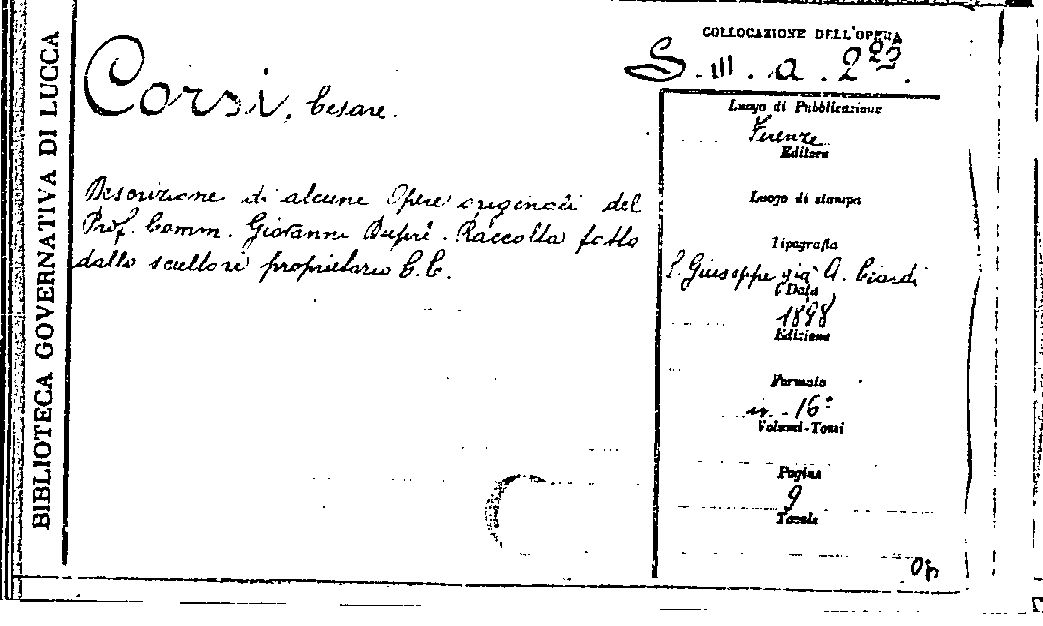 BIBLIOTECA GOVERNATIVA DI LUCCA
COLLOCAZIONE DELL'OPERA
S. III. a. 223.
Corsi, Cesare.
Descrizione di alcune Opere originali del
Prof. Comm. Giovanni Duprè. Raccolta fatta
dallo scultore proprietario C. C.
Luogo di Pubblicazione
Firenze
Editore
Luogo di stampa
Tipografia
Giuseppe già A. Ciardi
Data
1898
Edizione
Formato
in-16°
Volumi-Tomi
Pagine
9
Tavole
Op